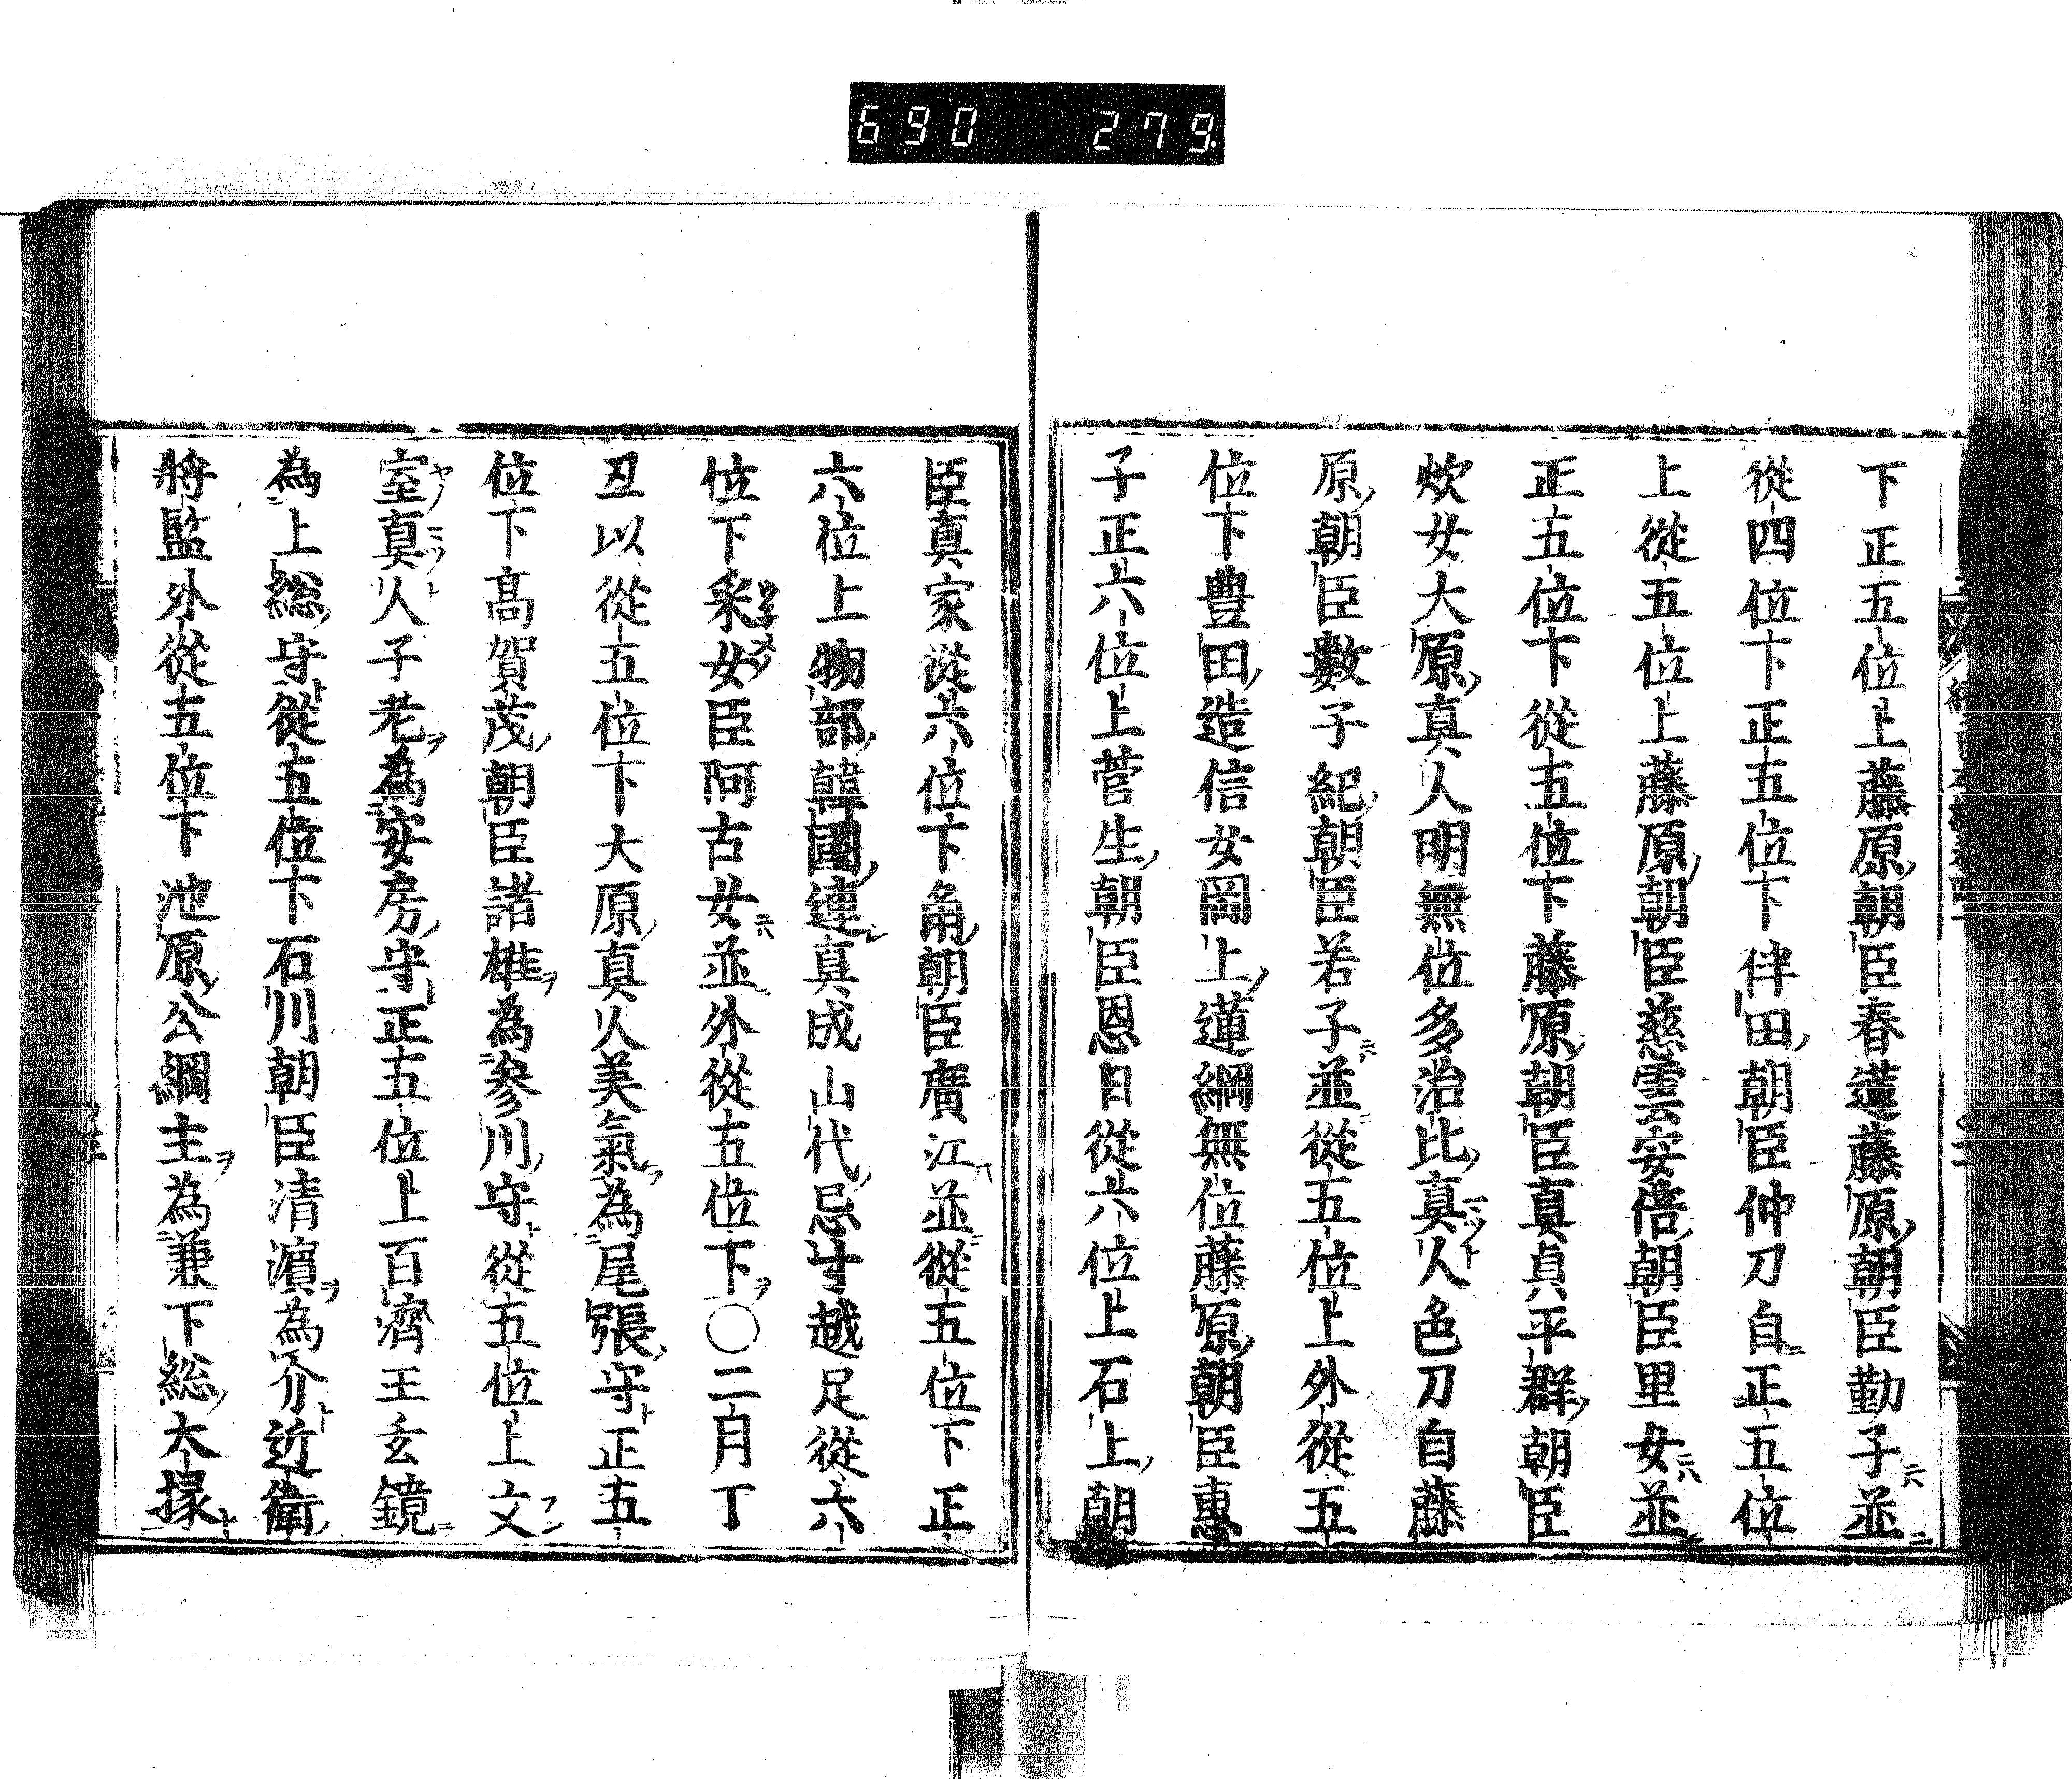 690 279
下正五位上藤原朝臣春蓮藤原朝臣勤子並
從四位下正五位下伴田朝臣仲刀自正五位
上從五位上藤原朝臣慈雲安倍朝臣里女並
正五位下從五位下藤原朝臣真貞平群朝臣
炊女大原真人明無位多治比真人色刀自藤
原朝臣數子紀朝臣若子並從五位上外從五
位下豊田造信女岡上連綱無位藤原朝臣惠
子正六位上菅生朝臣恩日從六位上石上朝
臣真家從六位下角朝臣廣江並從五位下正
六位上物部韓國連真成山代忌寸越足從六
位下采女臣阿古女並外從五位下○二月丁
丑以從五位下大原真人美氣為尾張守正五
位下髙賀茂朝臣諸雄為參川守從五位上文
室真人子老為安房守正五位上百濟王玄鏡
為上総守從五位下石川朝臣清濵為介近衛
將監外從五位下池原公綱主為兼下総大掾